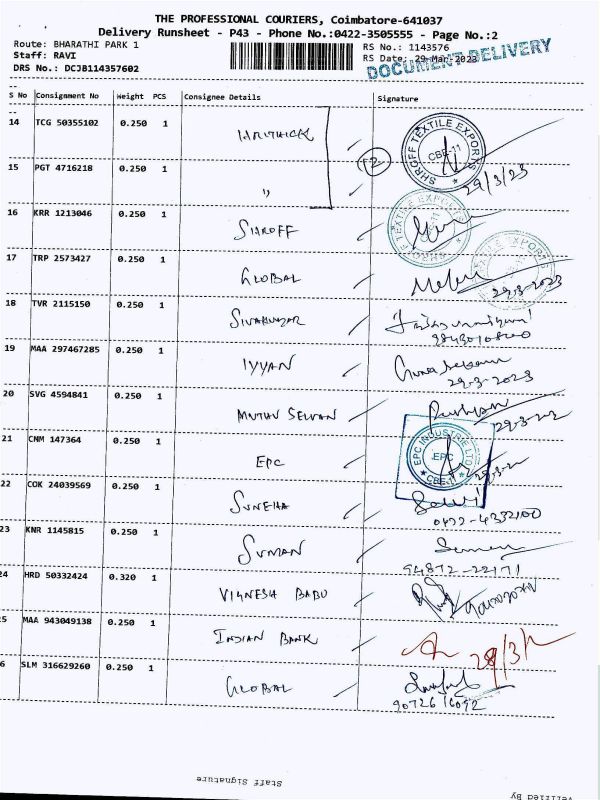 THE PROFESSIONAL COURIERS, Coimbatore-641037
Delivery Runsheet - P43 - Phone No.:0422-3505555 - Page No.:2
Route: BHARATHI PARK 1
RS No.: 1143576
Staff: RAVI
RS Date: 29-Mar-2023
DRS No.: DCJB114357602
DOCUMENT DELIVERY
S No Consignment No Weight PCS Consignee Details Signature
14 TCG 50355102 0.250 1 HRITHICK
SHROFF TEXTILE EXPORTS CBE-11
15 PGT 4716218 0.250 1 "
29/3/23
16 KRR 1213046 0.250 1 SHROFF
17 TRP 2573427 0.250 1 GLOBAL
29-3-2023
18 TVR 2115150 0.250 1 SIVAKUMAR
19 MAA 297467285 0.250 1 IYYAN
29-3-2023
20 SVG 4594841 0.250 1 MUTHU SELVAN
21 CNM 147364 0.250 1 EPC
EPC INDUSTRIE LTD EPC CBE-11
22 COK 24039569 0.250 1 SUNEHA
0422-4332100
23 KNR 1145815 0.250 1 SUMAN
94872-22171
24 HRD 50332424 0.320 1 VIGNESH BABU
25 MAA 943049138 0.250 1 INDIAN BANK
26 SLM 316629260 0.250 1 GLOBAL
90726 16092
Staff Signature
Verified By